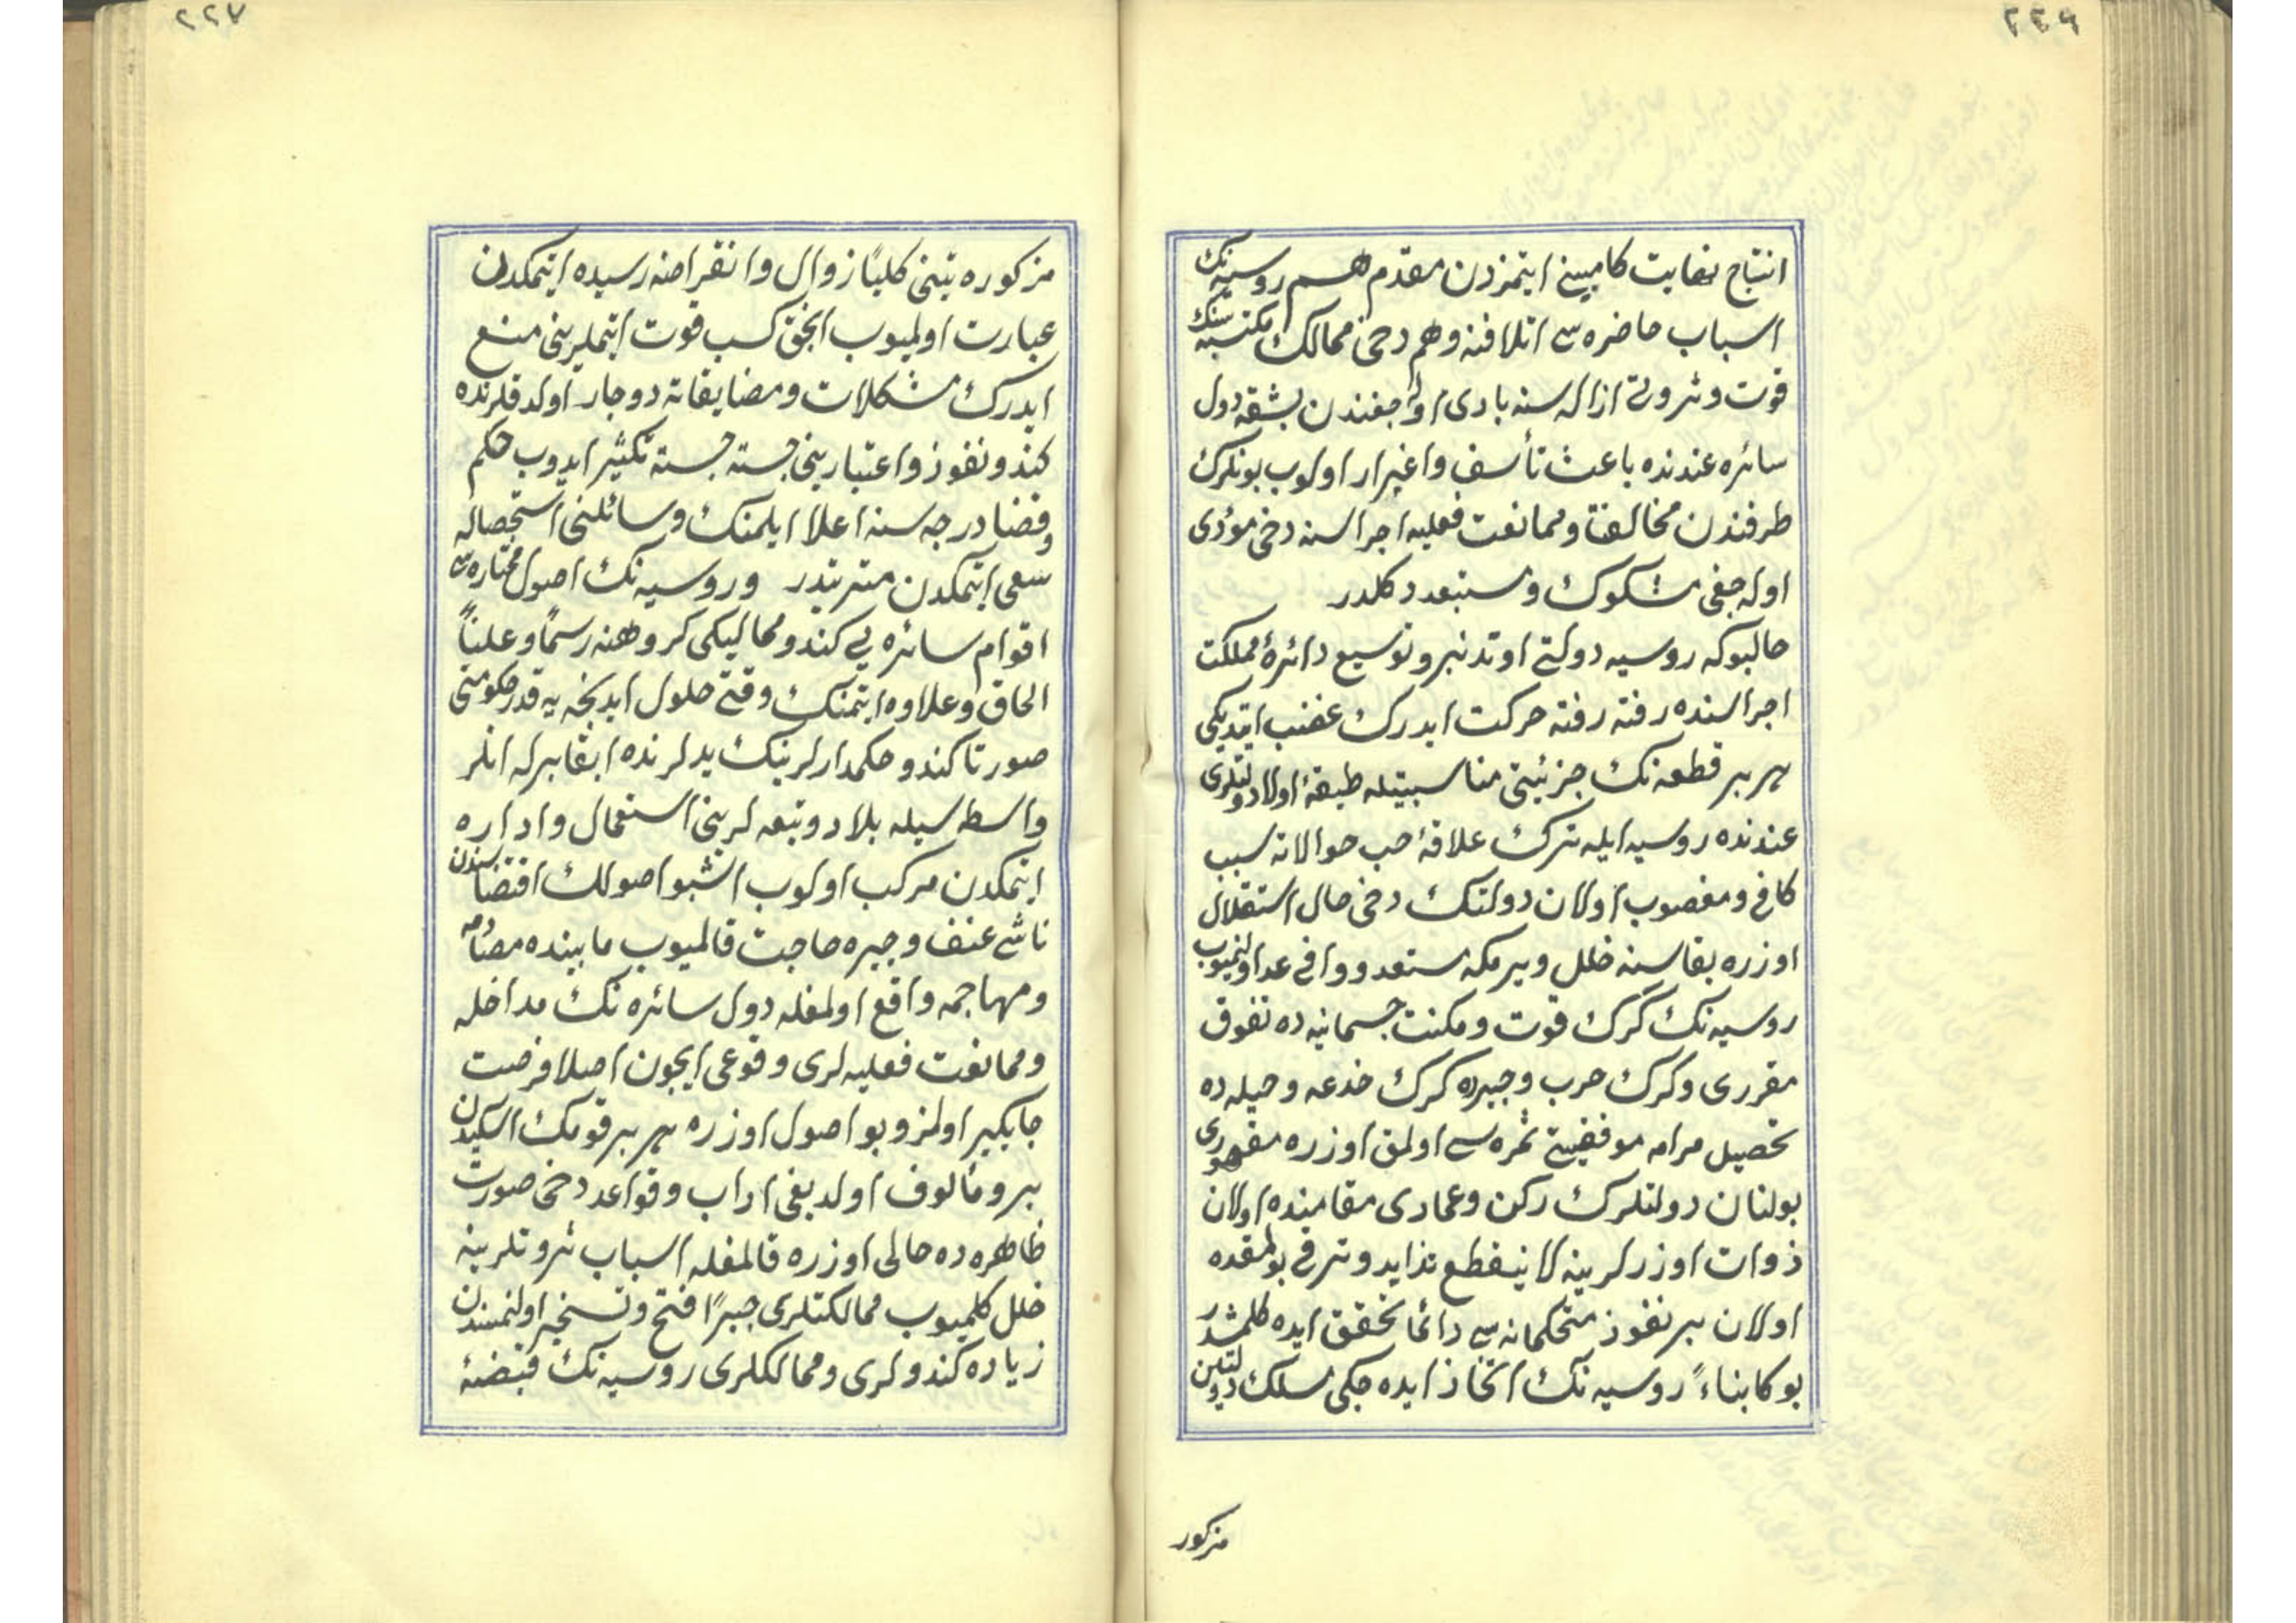 ٢٢٦
انتاج نهايت كاميينى ايتمزدن مقدم هم روسيه نك
اسباب حاضره سى اتلافنه وهم دخى ممالك مكتسبه سنك
قوت و ثروتى ازاله سنه بادى اوله جغندن بشقه دول
سائره عندنده باعث تأسف و اغبرار اولوب بونلرك
طرفندن مخالفت و ممانعت فعليه اجراسنه دخى مؤدى
اوله جغى مشكوك و مستبعد دكلدر
حالبوكه روسيه دولتى اوتدنبرو توسيع دائرۀ مملكت
اجراسنده رفته رفته حركت ايدرك غضب ايتديكى
هر بر قطعه نك جزئيتى مناسبتيله طبقۀ اولا دولتلرى
عندنده روسيه ايله ترك علاقۀ حب حوالاته سبب
كافى و مغصوب اولان دولتك دخى حال استقلال
اوزره بقاسنه خلل ويرمكه مستعد و وافى عد اولنميوب
روسيه نك كرك قوت و مكنت جسمانيه ده تفوق
مقررى و كرك حرب و جبرده كرك خدعه و حيله ده
تحصيل مرامه موفقيتى ثمره سى اولمق اوزره مقهورى
بولنان دولتلرك ركن و عمادى مقامنده اولان
ذوات اوزرلرينه لاينقطع تزايد و ترقى بولمقده
اولان بر نفوذ متحكمانه سى دائما تحقق ايده كلمشدر
بوكا بناءً روسيه نك اتخاذ ايده جكى مسلك دولتين
مزكور
٢٢٧
مزكوره يتنى كليًا زوال و انقراضه رسيده ايتمكدن
عبارت اولميوب انجق كسب قوت ايتملرينى منع
ايدرك مشكلات و مضايقاته دوچار اولدقلرنده
كندو نفوذ و اعتبارينى جسته جسته تكثير ايدوب حكم
و قضا درجه سنه اعلا ايلمنك وسائلنى استحصاله
سعى ايتمكدن مترتبدر و روسيه نك اصول مختاره سى
اقوام سائره يى كندو ممالكى كروهنه رسمًا و علنًا
الحاق و علاوه ايتمنك وقتى حلول ايدنجه يه قدر حكومتى
صورتا كندو حكمدارلرينك يدلرنده ابقا برله انلر
واسطه سيله بلاد و تبعه لرينى استعمال و اداره
ايتمكدن مركب اولوب اشبو اصولك اقتضاسندن
ناشى عنف و جبره حاجت قالميوب مابينده مصادمه
و مهاجمه واقع اولمغله دول سائره نك مداخله
و ممانعت فعليه لرى وقوعى ايچون اصلا فرصت
جايكير اولمز و بو اصول اوزره هر بر قومك اسكيدن
برو مألوف اولديغى اداب و قواعد دخى صورت
ظاهره ده حالى اوزره قالمغله اسباب ثروتلرينه
خلل كلميوب ممالكتلرى جبرًا فتح و تسخير اولنمسندن
زياده كندولرى و ممالكلرى روسيه نك قبضۀ